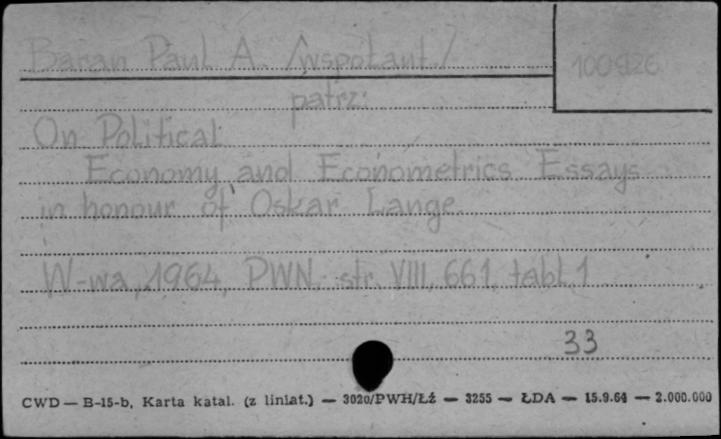 Baran Paul A. /wspołaut./
100926
patrz:
On Political
Economy and Econometrics Essays
in honour of Oskar Lange.
W-wa, 1964, PWN, str. VIII, 661, tabl. 1
33
CWD — B-15-b, Karta katal. (z liniat.) — 3020/PWH/Łź — 3255 — ŁDA — 15.9.64 — 2.000.000